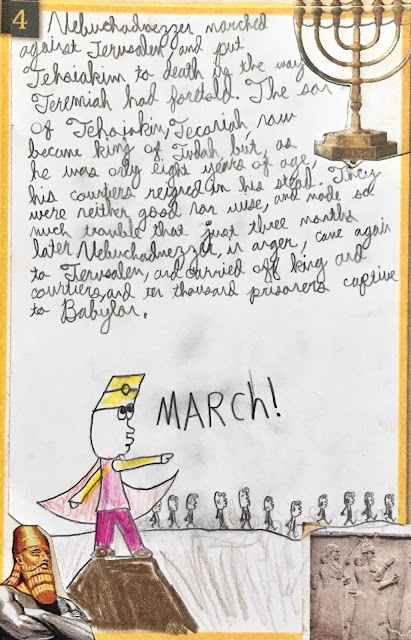 4
Nebuchadnezzer marched
against Jerusalem, and put
Jehoiakim to death in the way
Jeremiah had foretold. The son
of Jehojakin, Jeconiah, now
became king of Judah but, as
he was only eight years of age,
his courtiers reigned in his stead. They
were neither good nor wise, and made so
much trouble that just three months
later Nebuchadnezzer, in anger, came again
to Jerusalem, and carried off king and
courtiers, and ten thousand prisoners captive
to Babylon.
MARCh!